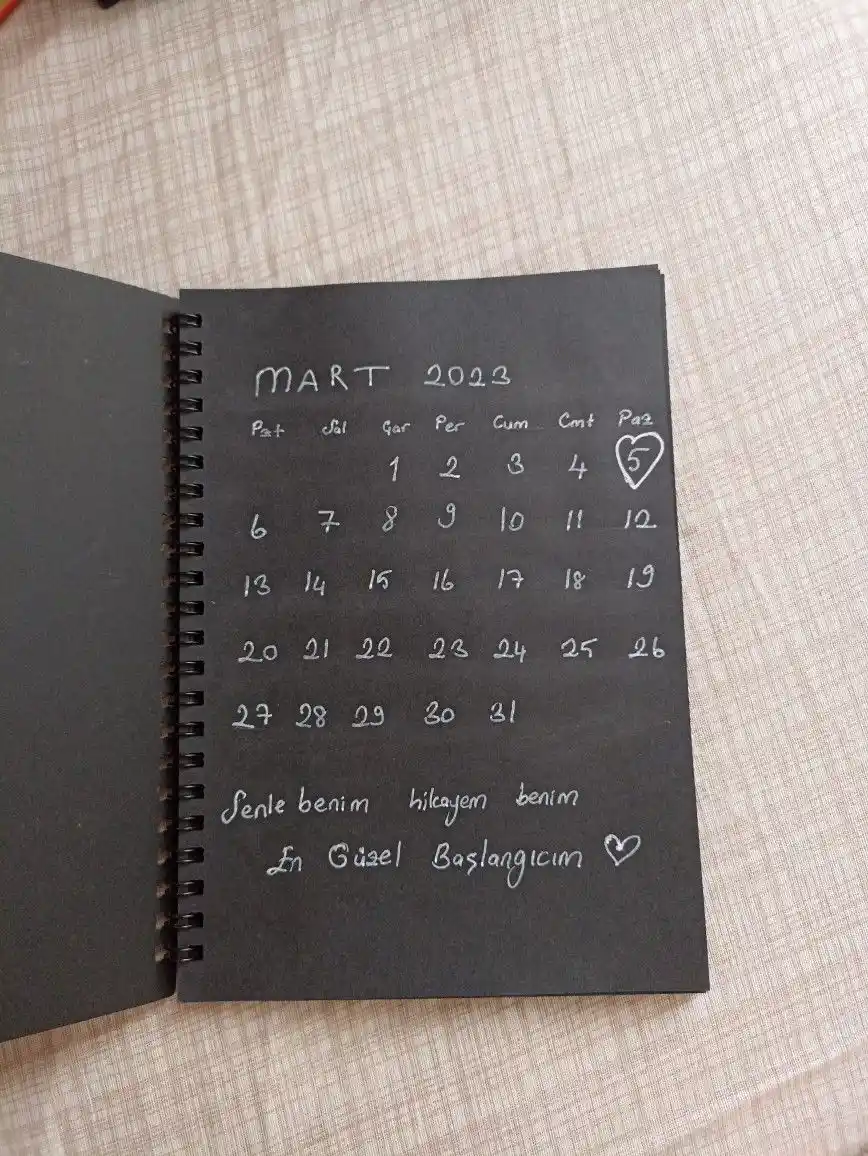 MART 2023
Pzt Sal Çar Per Cum Cmt Paz
1 2 3 4 5
6 7 8 9 10 11 12
13 14 15 16 17 18 19
20 21 22 23 24 25 26
27 28 29 30 31
Senle benim hikayem benim
En Güzel Başlangıcım ♡